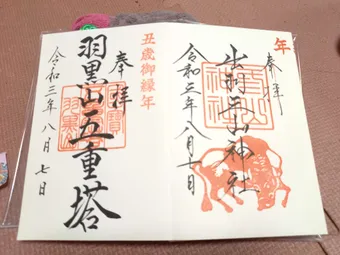 年
奉拝
出羽三山神社
令和三年八月七日
丑歳御縁年
奉拝
羽黒山五重塔
令和三年八月七日